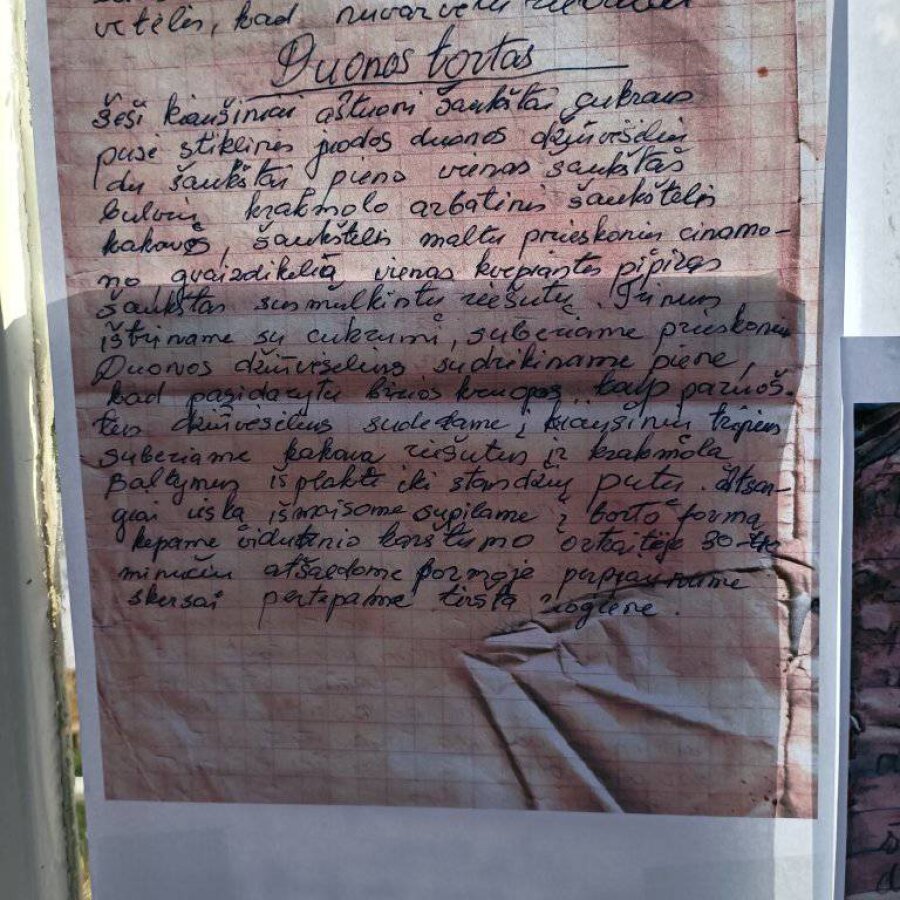 vėtėlis, kad nuvarvėtų riebalai
Duonos tortas
šeši kiaušiniai aštuoni šaukštai cukraus
pusė stiklinės juodos duonos džiūvėsėlių
du šaukštai pieno vienas šaukštas
bulvių krakmolo arbatinis šaukštelis
kakavos, šaukštelis maltų prieskonių cinamo-
no gvaizdikėlių vienas kvepiantis pipiras
šaukštas susmulkintų riešutų. Trinus
ištriname su cukrumi, suberiame prieskonius
Duonos džiūvėsėlius sudrėkiname piene,
kad pasidarytų birios kruopos.. kaip paruoš-
tus džiūvėsėlius sudedame į kiaušinių trynius
suberiame kakava riešutus ir krakmola
Baltymus išplakti iki standžių putų. Atsar-
giai viską išmaišome supilame į torto formą
kepame vidutinio karštumo orkaitėje 30-
minučių atšaldome formoje perpjauname
skersai pertepame tiršta uogiene.